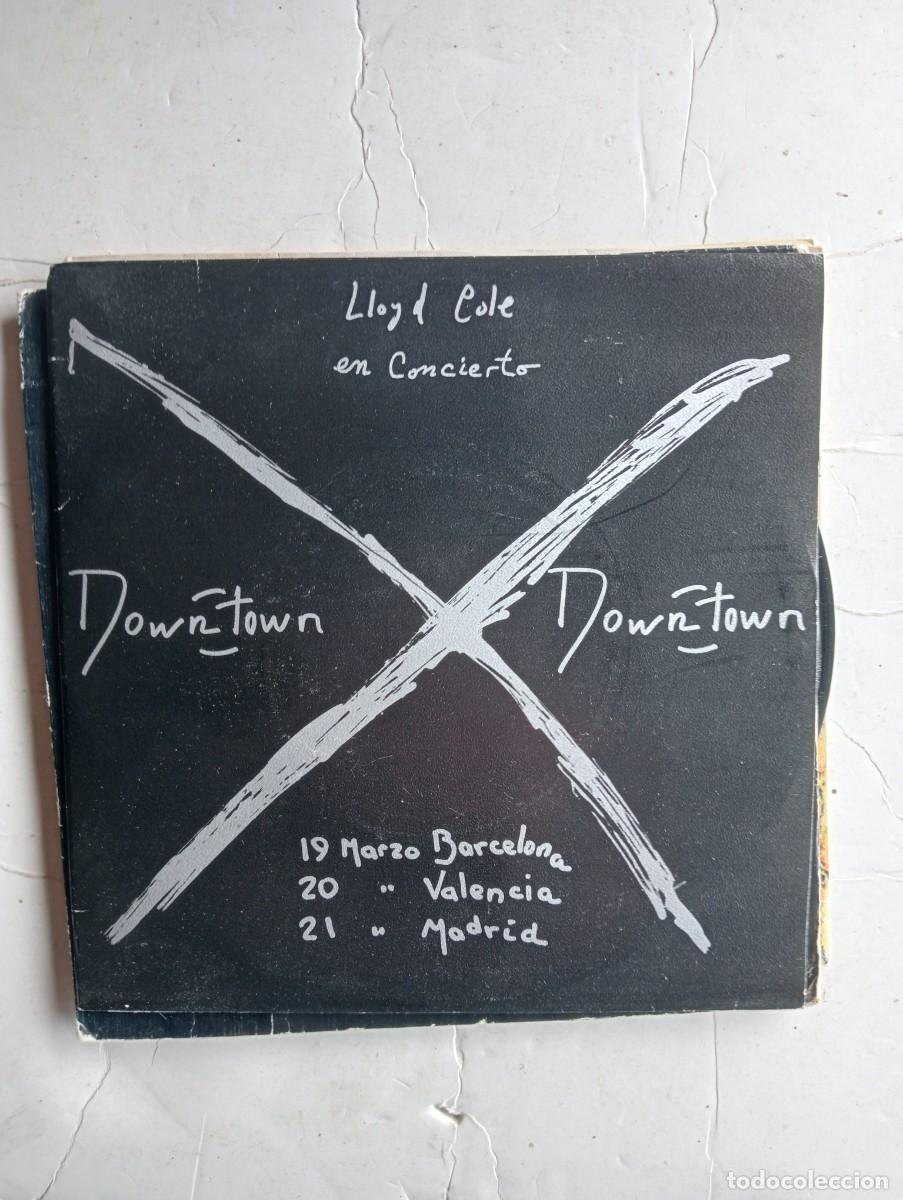 Lloyd Cole
en Concierto
Downtown
Downtown
19 Marzo Barcelona
20 " Valencia
21 " Madrid
todocoleccion